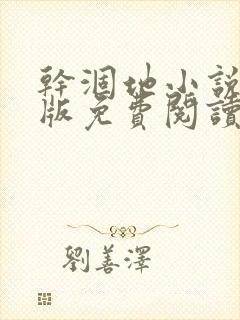 幹涸地小說
版免費閱讀
劉善澤